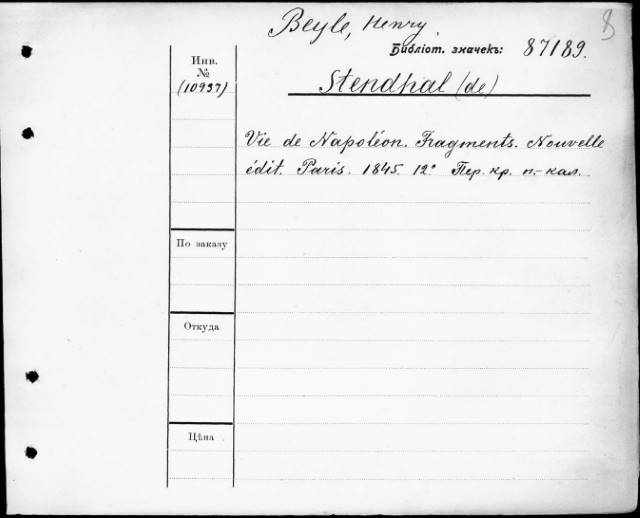 Beyle, Henry
8
Библіот. значекъ: 87189.
Инв.
№
(10937)
Stendhal (de)
Vie de Napoléon. Fragments. Nouvelle
édit. Paris. 1845. 12° Пер. кр. п.-кал.
По заказу
Откуда
Цѣна